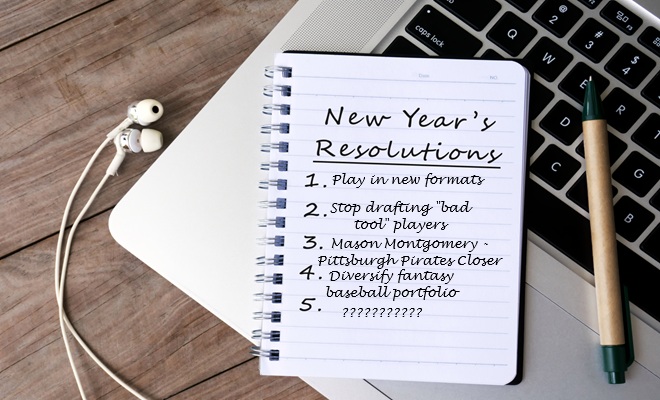 caps lock
Q
@
2
W
#
3
E
$
4
R
D
C
B
NO.
New Year's
Resolutions
1. Play in new formats
2. Stop drafting "bad
tool" players
3. Mason Montgomery -
Pittsburgh Pirates Closer
4. Diversify fantasy
baseball portfolio
5. ???????????